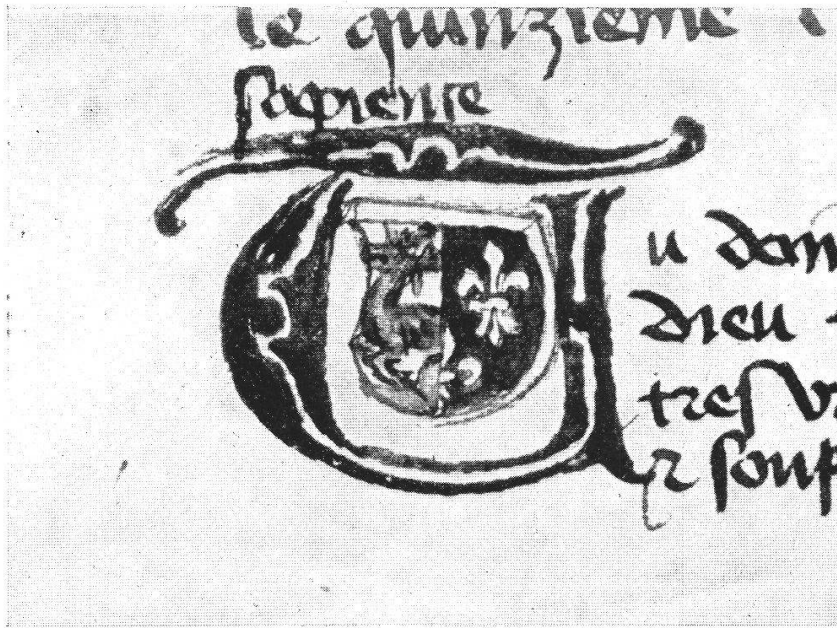 le quinzieme
sapiense
Tu dom
dieu
tres vr
soup